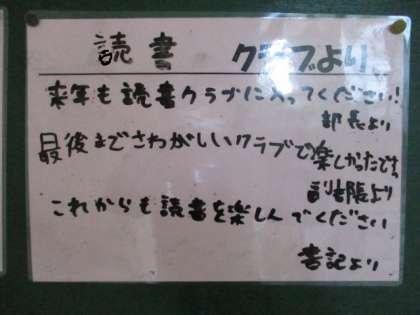 読書 クラブより
来年も読書クラブに入ってください!
部長より
最後までさわがしいクラブで楽しかったです
副部長より
これからも読書を楽しんでください
書記より